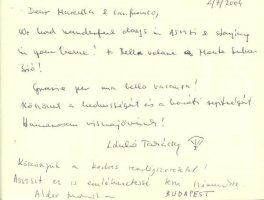 2/7/2004
Dear Marcella & Lanfranco,
We had wonderful days in Assisi & staying
in your house! + Bella volare a Monte Suba
sio!
Grazie per una bella vacanza!
Köszönet a kedvességét és a baráti segítségét.
Hamarosan visszajövünk!
László Tarácsy
Köszönjük a kedves vendégszeretetet!
Assisit ez is emlékezetessé
BUDAPEST